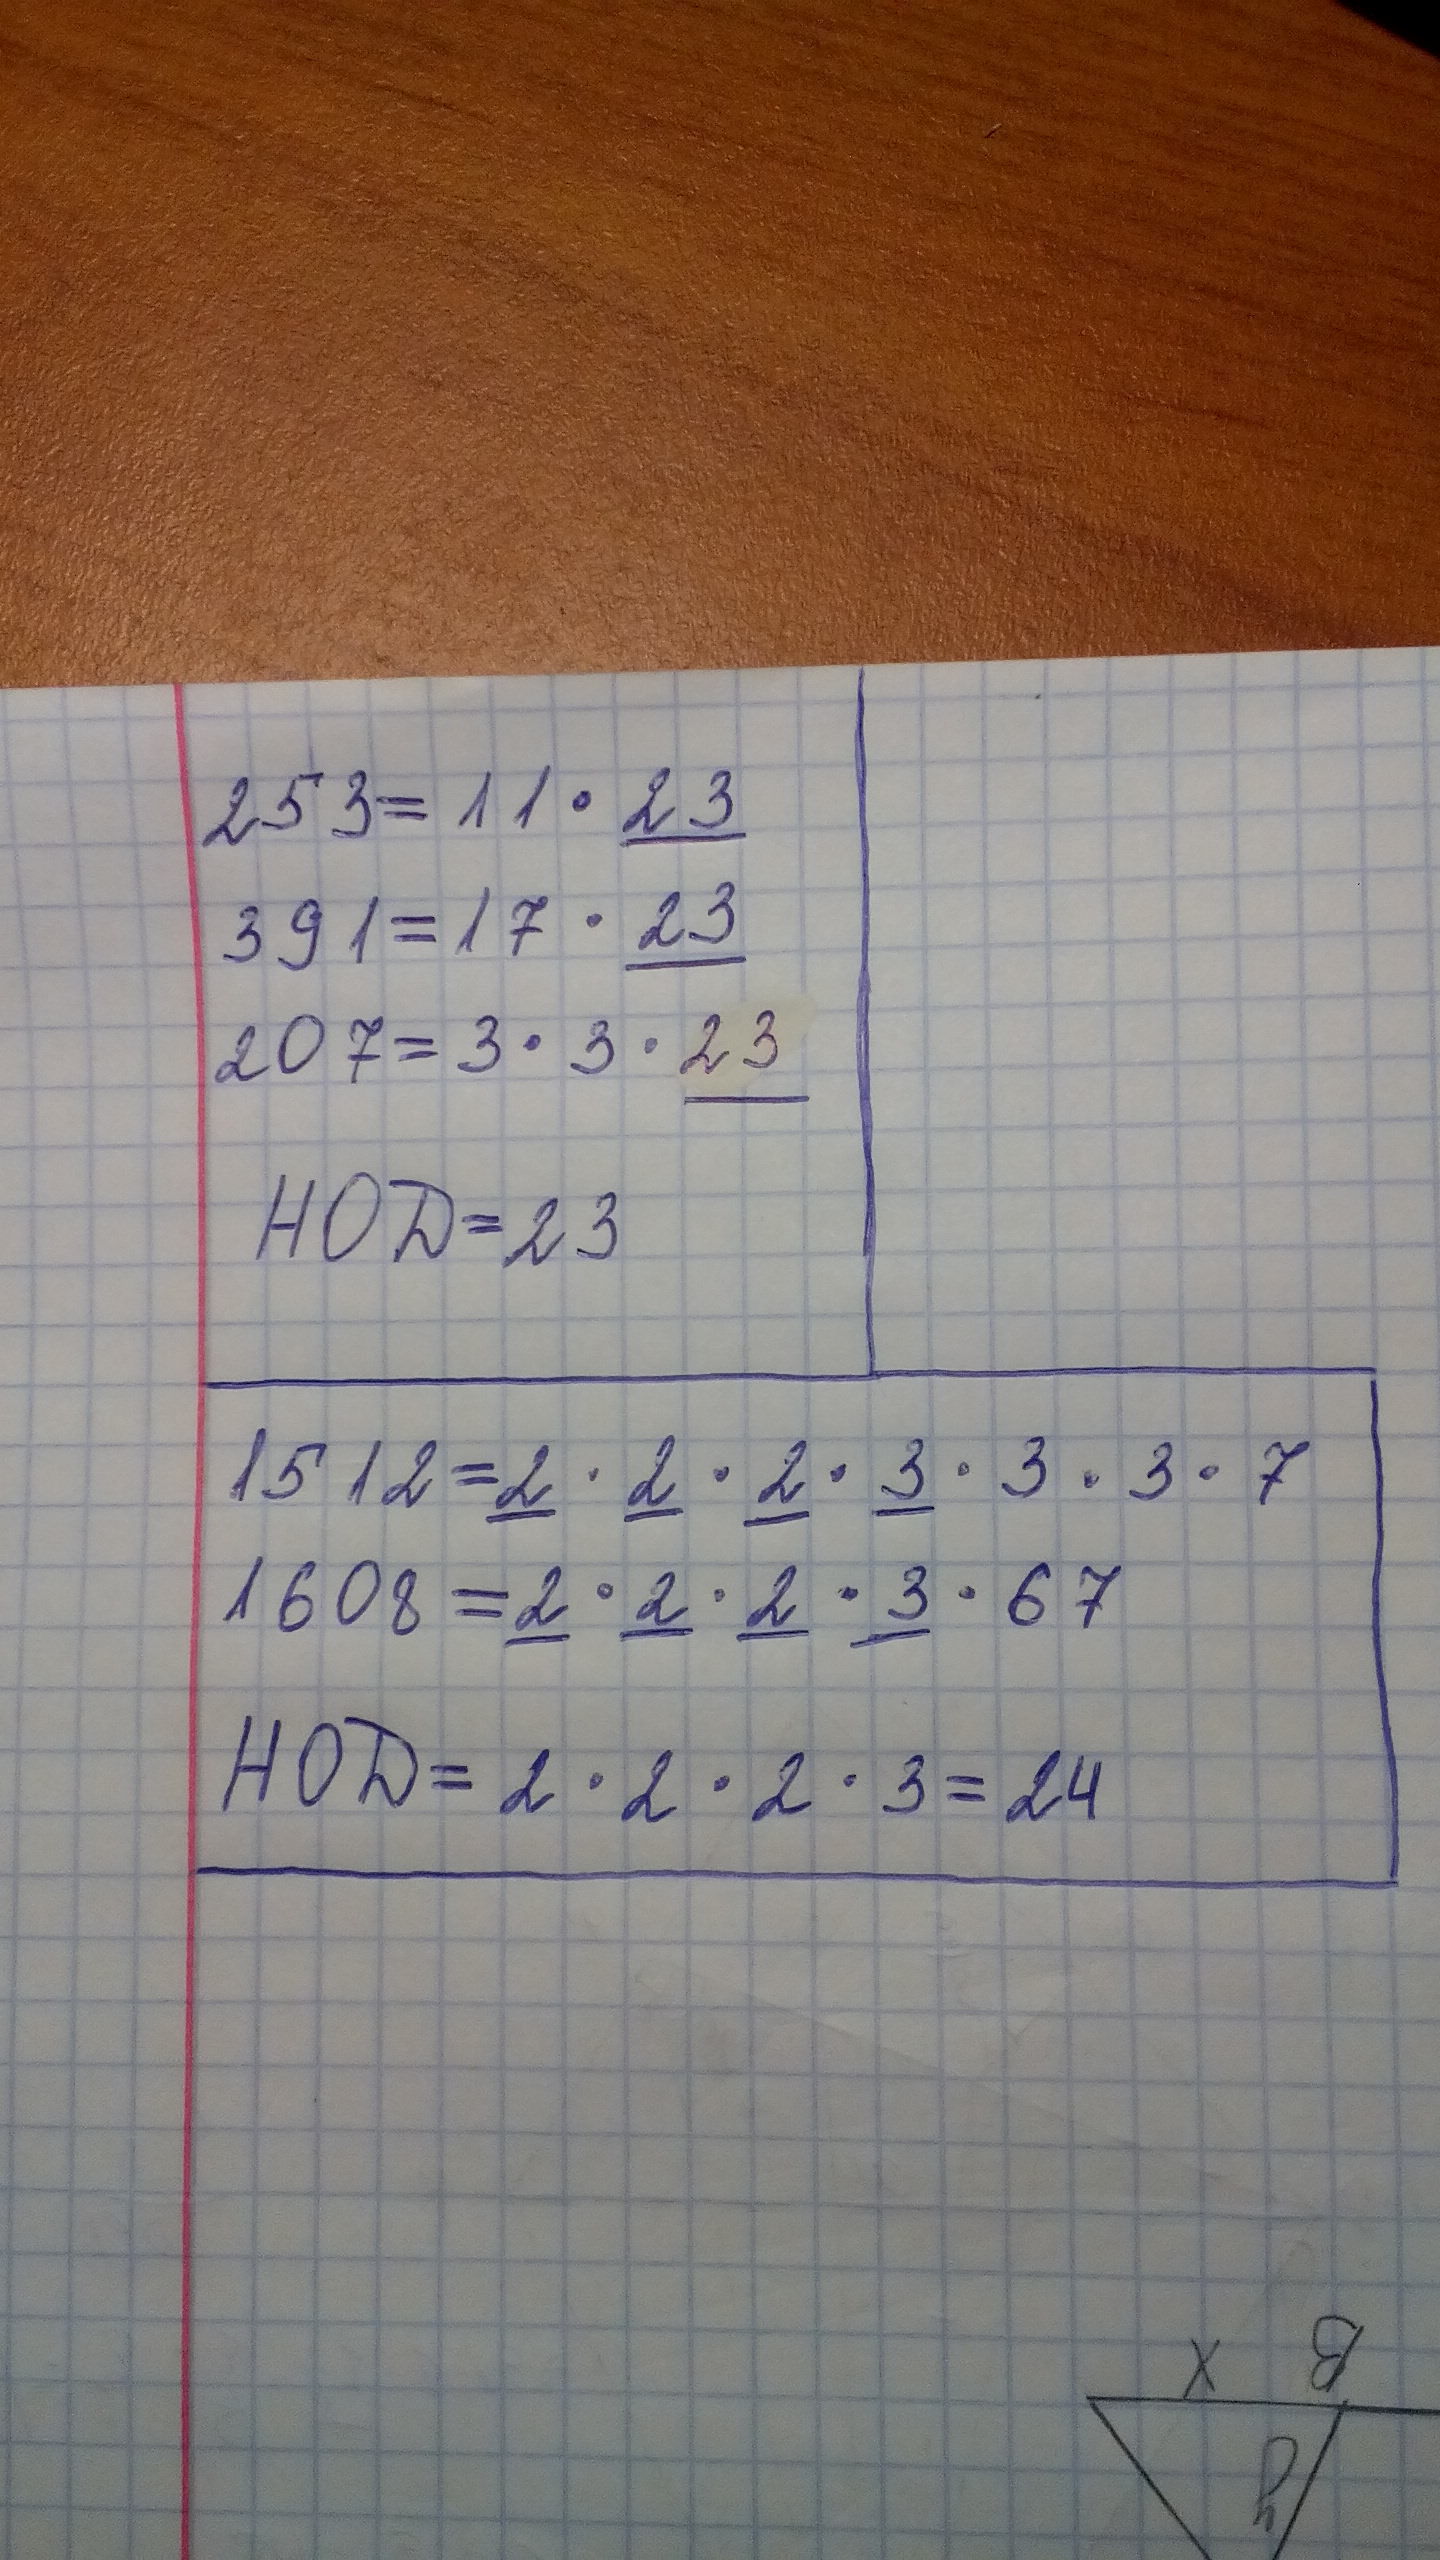 253=11·23
391=17·23
207=3·3·23
НОД=23
1512=2·2·2·3·3·3·7
1608=2·2·2·3·67
НОД=2·2·2·3=24
x B